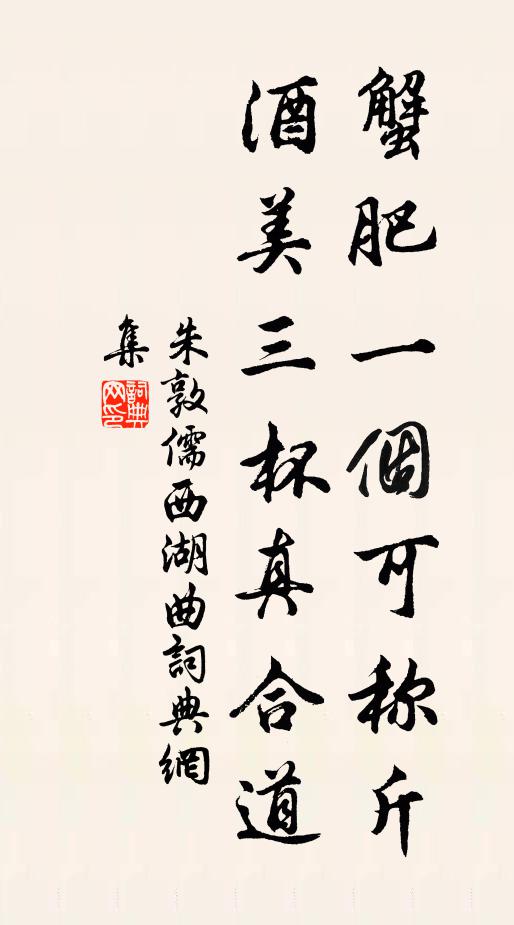 蟹肥一個可称斤
酒美三杯真合道
朱敦儒西湖曲詞典網
集
詞典
网印